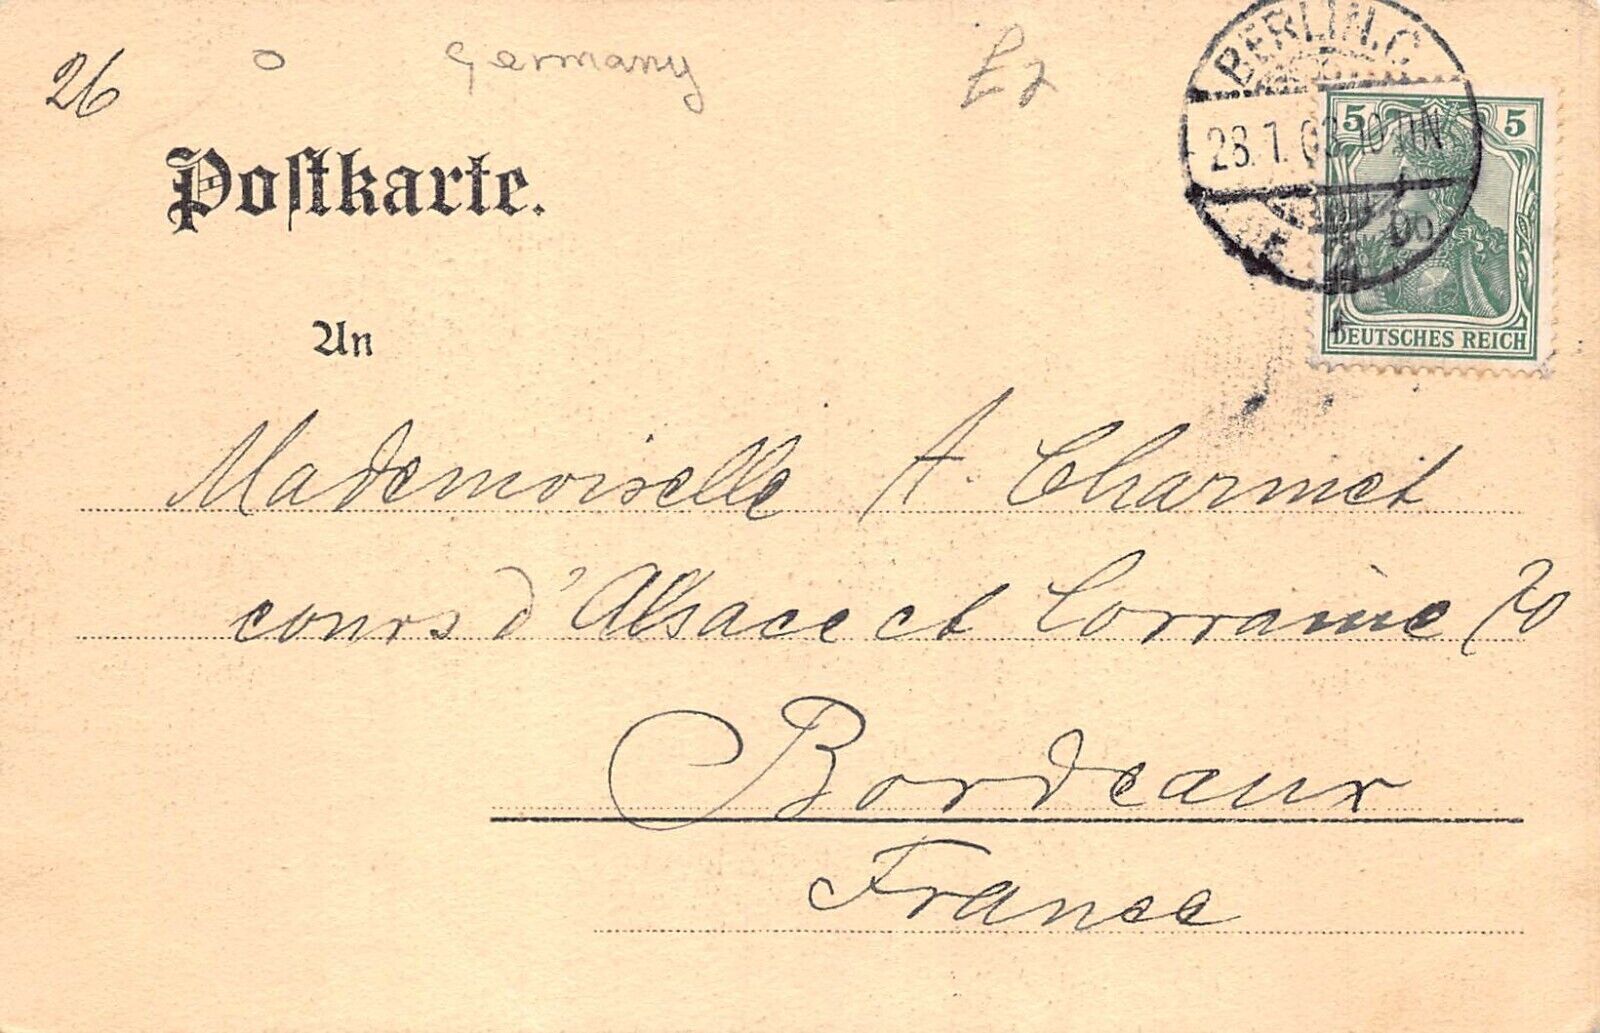 26 Germany £2
BERLIN. C.
28. 1. 03. 10-11N
5 5
DEUTSCHES REICH
Poſtkarte.
An
Mademoiselle A. Charmet
cours d'Alsace et Lorraine 20
Bordeaux
France